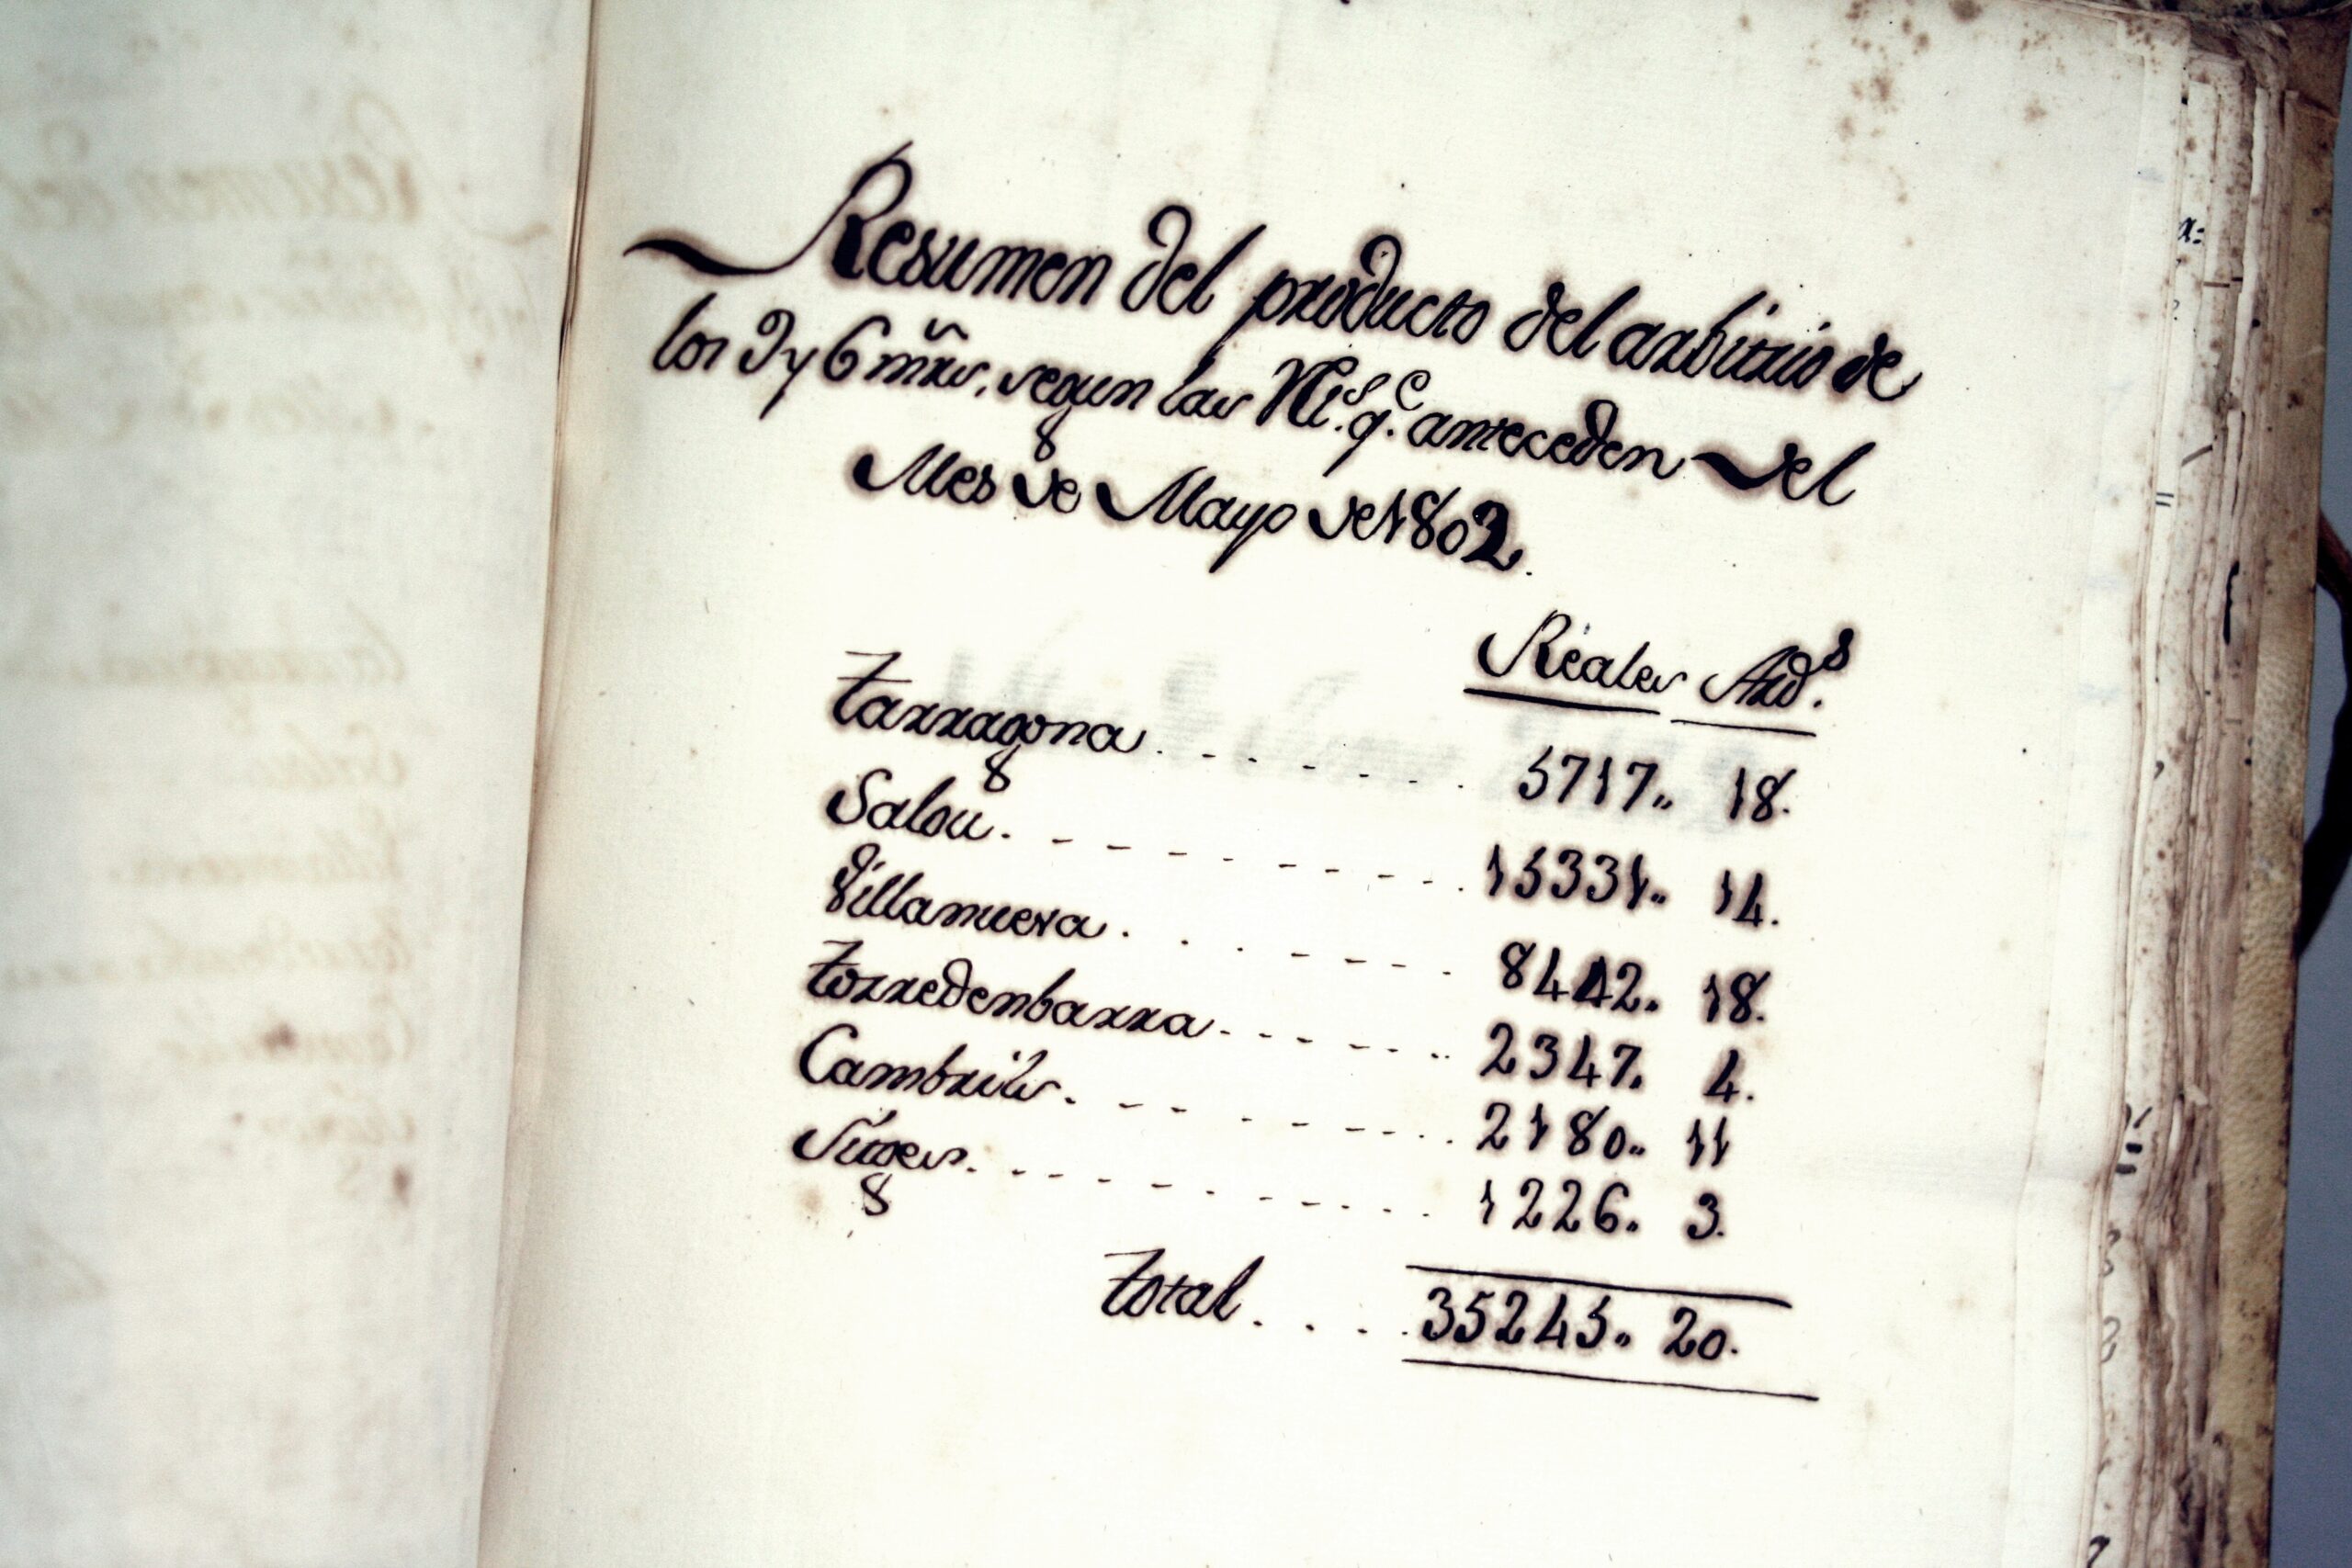 Resumen del producto del arbitrio de
los 9 y 6 mrs, segun las q.e anteceden del
Mes de Mayo de 1802.
Reales Ard.s
Tarragona . - - - - - . 5717.. 18.
Salou. - - - - - - - - . 15331.. 14.
Villanueva . . . - - - - . 8442.. 18.
Torredenbarra - - - - - .. 2347. 4.
Cambrils. - - - - - - - . 2180.. 11
Sitges. - - - - - - - - . 1226. 3.
Total . . . . . 35245.. 20.